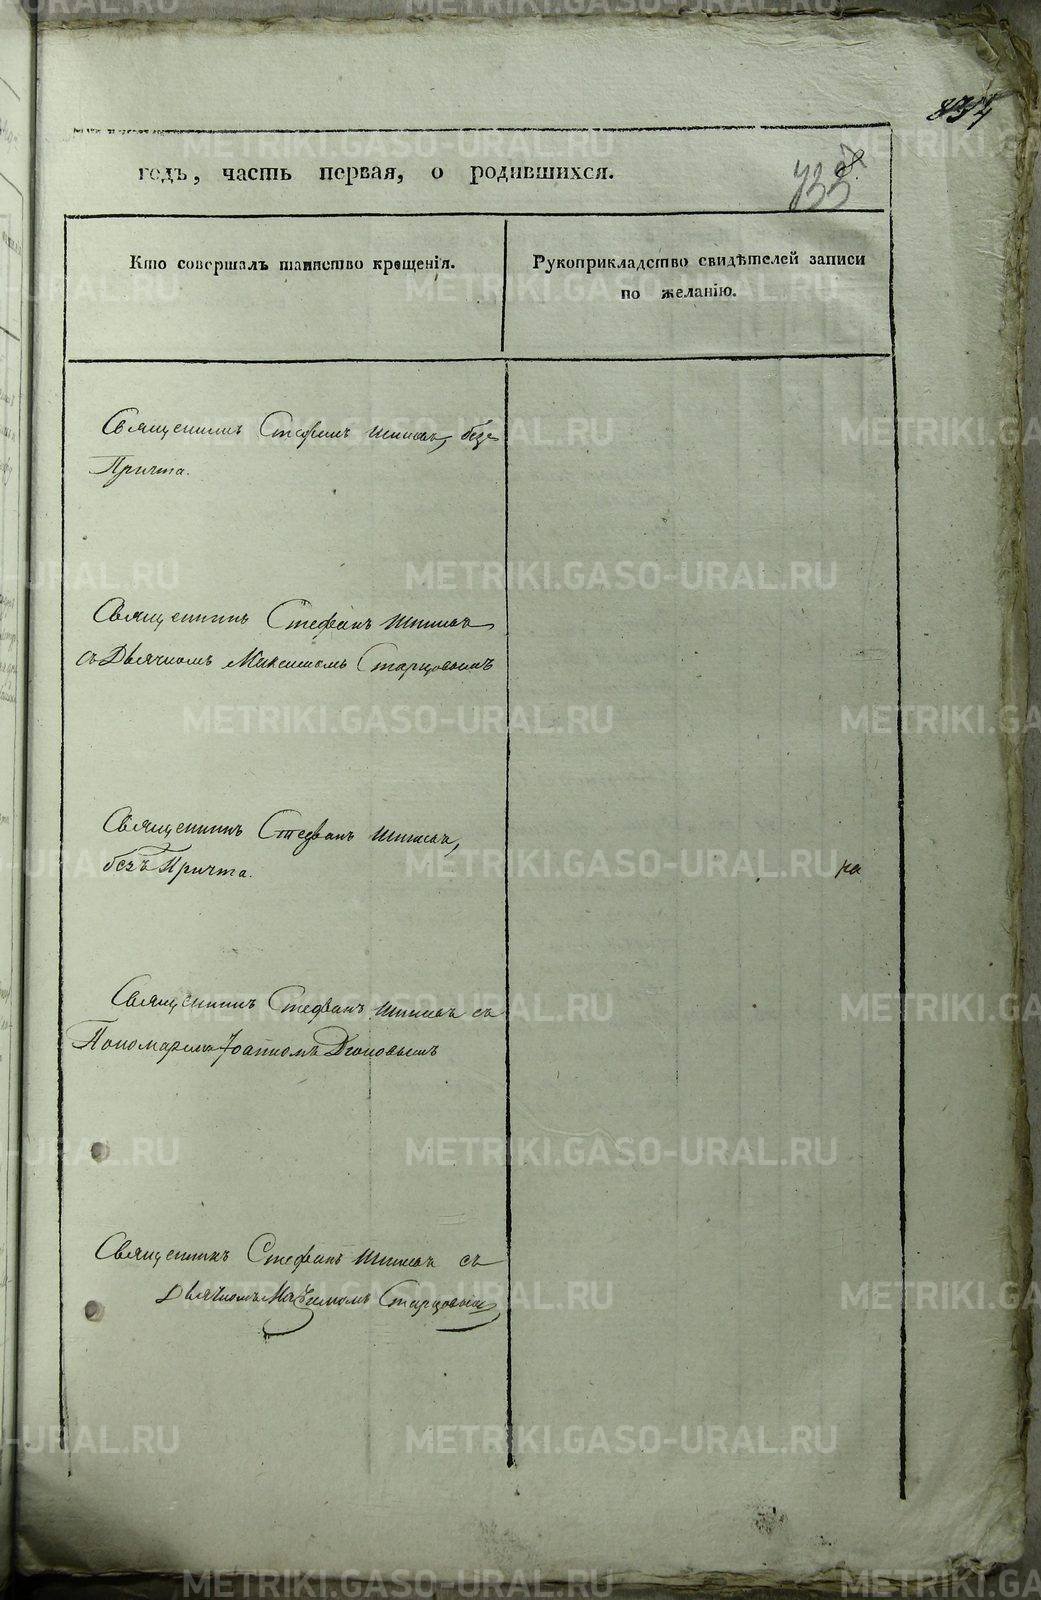 годъ, часть первая, о родившихся.
Кто совершалъ таинство крещенія.
Рукоприкладство свидѣтелей записи
по желанію.
Священникъ Стефанъ безъ
Причта.
Священникъ Стефанъ
съ Дьячкомъ Максимомъ Старцовымъ
Священникъ Стефанъ
безъ Причта.
Священникъ Стефанъ съ
Пономаремъ Іоанномъ
Священникъ Стефанъ съ
Дьячкомъ Максимомъ Старцовымъ
METRIKI.GASO-URAL.RU